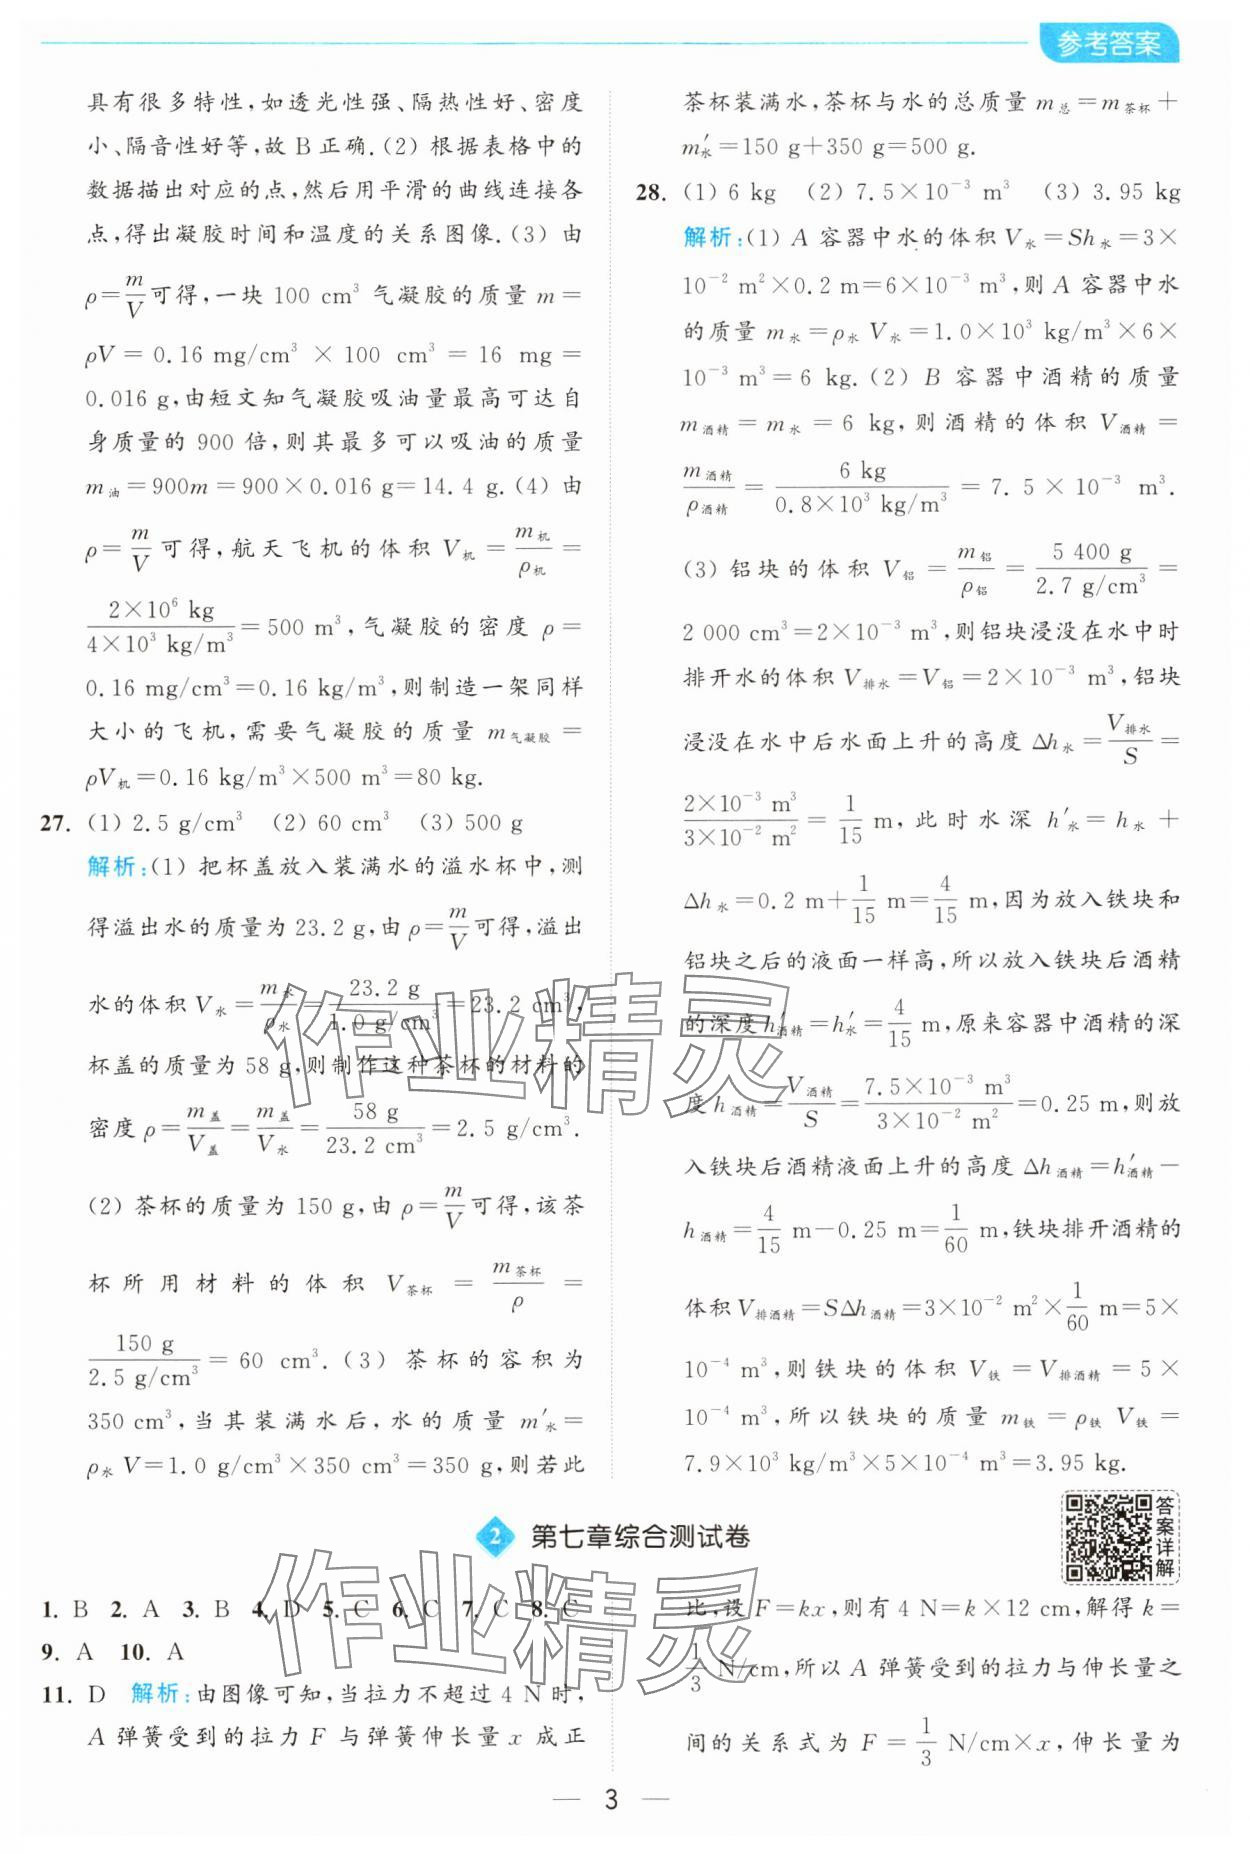 参考答案
具有很多特性,如透光性强、隔热性好、密度
小、隔音性好等,故 B 正确.(2) 根据表格中的
数据描出对应的点,然后用平滑的曲线连接各
点,得出凝胶时间和温度的关系图像.(3) 由
ρ=m/V可得,一块 100 cm³ 气凝胶的质量 m=
ρV=0.16 mg/cm³×100 cm³=16 mg=
0.016 g,由短文知气凝胶吸油量最高可达自
身质量的 900 倍,则其最多可以吸油的质量
m油=900m=900×0.016 g=14.4 g.(4) 由
ρ=m/V可得,航天飞机的体积 V机=m机/ρ机=
2×10⁶ kg/4×10³ kg/m³=500 m³,气凝胶的密度 ρ=
0.16 mg/cm³=0.16 kg/m³,则制造一架同样
大小的飞机,需要气凝胶的质量 m气凝胶=
ρV机=0.16 kg/m³×500 m³=80 kg.
27. (1) 2.5 g/cm³ (2) 60 cm³ (3) 500 g
解析:(1) 把杯盖放入装满水的溢水杯中,测
得溢出水的质量为 23.2 g,由 ρ=m/V可得,溢出
水的体积 V水=m水/ρ水=23.2 g/1.0 g/cm³=23.2 cm³,
杯盖的质量为 58 g,则制作这种茶杯的材料的
密度 ρ=m盖/V盖=m盖/V水=58 g/23.2 cm³=2.5 g/cm³.
(2) 茶杯的质量为 150 g,由 ρ=m/V可得,该茶
杯所用材料的体积 V茶杯=m茶杯/ρ=
150 g/2.5 g/cm³=60 cm³.(3) 茶杯的容积为
350 cm³,当其装满水后,水的质量 m′水=
ρ水 V=1.0 g/cm³×350 cm³=350 g,则若此
茶杯装满水,茶杯与水的总质量 m总=m茶杯+
m′水=150 g+350 g=500 g.
28. (1) 6 kg (2) 7.5×10⁻³ m³ (3) 3.95 kg
解析:(1) A 容器中水的体积 V水=Sh水=3×
10⁻² m²×0.2 m=6×10⁻³ m³,则 A 容器中水
的质量 m水=ρ水 V水=1.0×10³ kg/m³×6×
10⁻³ m³=6 kg.(2) B 容器中酒精的质量
m酒精=m水=6 kg,则酒精的体积 V酒精=
m酒精/ρ酒精=6 kg/0.8×10³ kg/m³=7.5×10⁻³ m³.
(3) 铝块的体积 V铝=m铝/ρ铝=5 400 g/2.7 g/cm³=
2 000 cm³=2×10⁻³ m³,则铝块浸没在水中时
排开水的体积 V排水=V铝=2×10⁻³ m³,铝块
浸没在水中后水面上升的高度 Δh水=V排水/S=
2×10⁻³ m³/3×10⁻² m²=1/15 m,此时水深 h′水=h水+
Δh水=0.2 m+1/15 m=4/15 m,因为放入铁块和
铝块之后的液面一样高,所以放入铁块后酒精
的深度 h′酒精=h′水=4/15 m,原来容器中酒精的深
度 h酒精=V酒精/S=7.5×10⁻³ m³/3×10⁻² m²=0.25 m,则放
入铁块后酒精液面上升的高度 Δh酒精=h′酒精−
h酒精=4/15 m−0.25 m=1/60 m,铁块排开酒精的
体积 V排酒精=SΔh酒精=3×10⁻² m²×1/60 m=5×
10⁻⁴ m³,则铁块的体积 V铁=V排酒精=5×
10⁻⁴ m³,所以铁块的质量 m铁=ρ铁 V铁=
7.9×10³ kg/m³×5×10⁻⁴ m³=3.95 kg.
2 第七章综合测试卷
答案详解
1. B 2. A 3. B 4. D 5. C 6. C 7. C 8. C
9. A 10. A
11. D 解析:由图像可知,当拉力不超过 4 N 时,
A 弹簧受到的拉力 F 与弹簧伸长量 x 成正
比,设 F=kx,则有 4 N=k×12 cm,解得 k=
1/3 N/cm,所以 A 弹簧受到的拉力与伸长量之
间的关系式为 F=1/3 N/cm×x,伸长量为
— 3 —
作业精灵
作业精灵